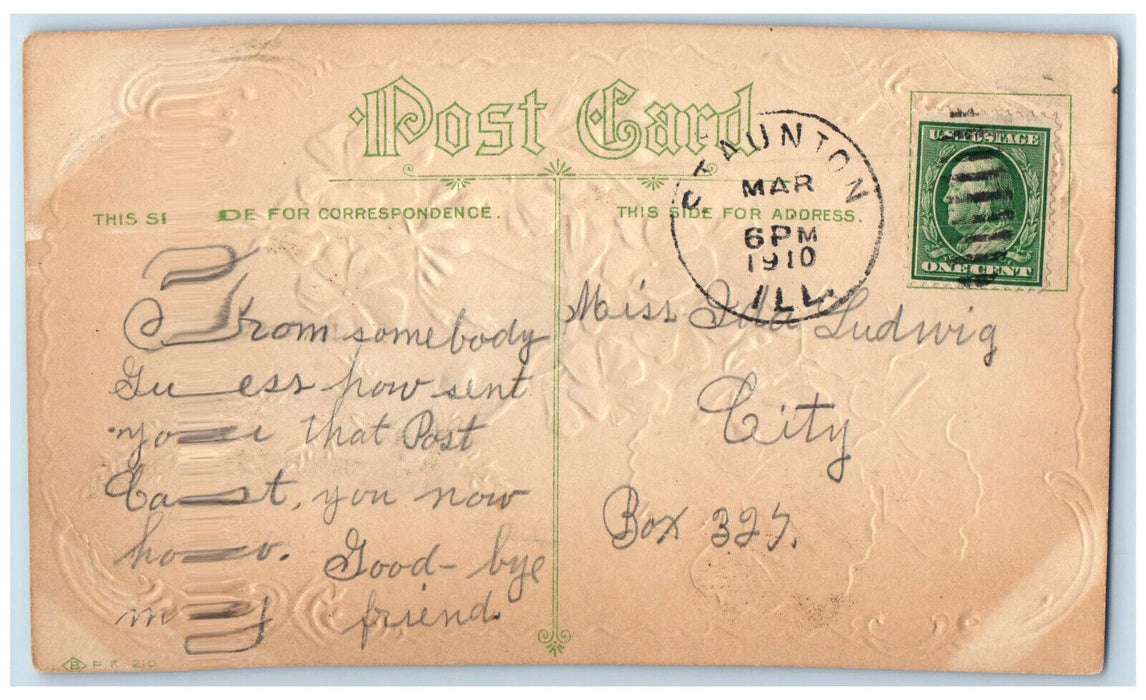 Post Card
THIS SIDE FOR CORRESPONDENCE.
THIS SIDE FOR ADDRESS.
STAUNTON
MAR
6PM
1910
ILL.
U.S. POSTAGE
ONE CENT
From somebody
Guess how sent
you that Post
Cast, you now
ho. Good-bye
my friend.
Miss Ida Ludwig
City
Box 327.